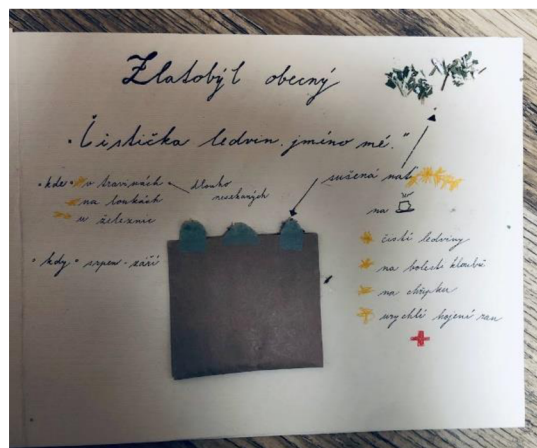 Zlatobýl obecný
"Čistička ledvin, jméno mé."
• kde • v travinách
dlouho nesekaných
na loukách
u železnic
• kdy • srpen - září
sušená nať
na
čistí ledviny
na bolesti kloubů
na chřipku
urychlí hojení ran